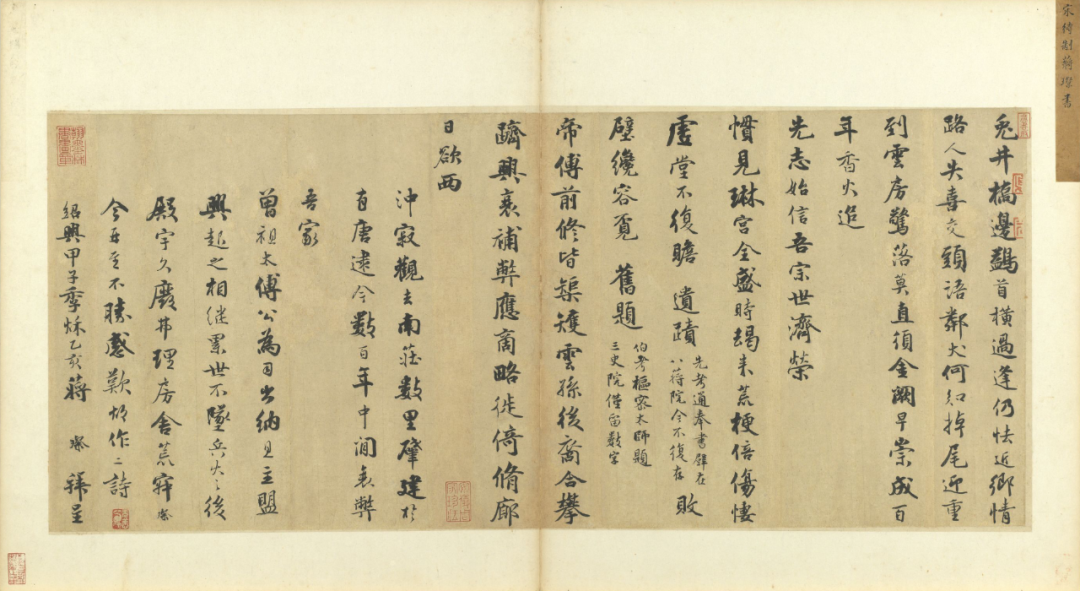 宋待制蔣璨書
兎井橋邊鷁首橫過逢仍怯近鄉情
路人失喜交頭語鄰犬何知掉尾迎重
到雲房驚落莫直須金闕早崇成百
年香火追
先志始信吾宗世濟榮
慣見琳宮全盛時朅来荒梗倍傷悽
虗堂不復瞻遺蹟先考通奉書辟在八蒋院今不復存敗
壁纔容覔舊題伯考樞密太師題三史院僅留數字
帝傅前修皆榘矱雲孫後裔合攀
躋興衰補弊應商略徙倚脩廊
日欲西
沖寂觀去南莊數里肇建於
有唐逮今數百年中間衰弊
吾家
曾祖太傅公為司出納且主盟
興起之相継累世不墜兵火之後
殿宇久廢弗理房舍荒穽
今再至不勝感歎輒作二詩
紹興甲子季秌乙亥蔣璨拜呈